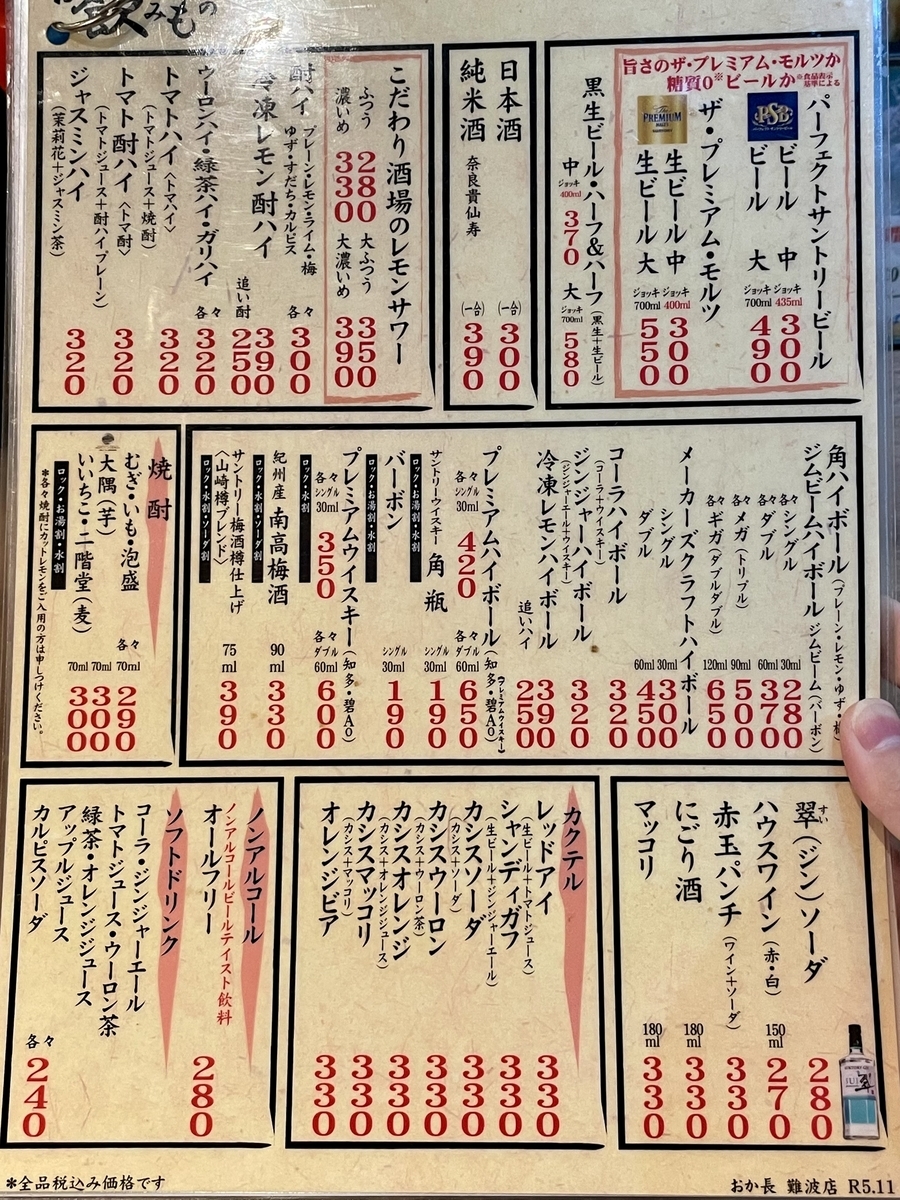 飲みもの
旨さのザ・プレミアム・モルツか
糖質0※ビールか ※食品表示基準による
パーフェクトサントリービール
PSB
ビール 中 ジョッキ 435ml 300
ビール 大 ジョッキ 700ml 490
ザ・プレミアム・モルツ
The PREMIUM MALT'S
生ビール 中 ジョッキ 400ml 300
生ビール 大 ジョッキ 700ml 550
黒生ビール・ハーフ&ハーフ(黒生+生ビール)
中 ジョッキ 400ml 370 大 ジョッキ 700ml 580
日本酒 (一合) 300
純米酒 奈良貴仙寿 (一合) 390
こだわり酒場のレモンサワー
ふつう 280 大ふつう 350
濃いめ 330 大濃いめ 390
酎ハイ プレーン・レモン・ライム・梅 ゆず・すだち・カルピス 各々 300
冷凍レモン酎ハイ 390
追い酎 250
ウーロンハイ・緑茶ハイ・ガリハイ 各々 320
トマトハイ〈トマハイ〉 320
(トマトジュース+焼酎)
トマト酎ハイ〈トマ酎〉 320
(トマトジュース+酎ハイプレーン)
ジャスミンハイ 320
(茉莉花+ジャスミン茶)
角ハイボール(プレーン・レモン・ゆず・梅)
ジムビームハイボール ジムビーム(バーボン)
各々シングル 30ml 280
各々ダブル 60ml 370
各々メガ(トリプル) 90ml 500
各々ギガ(ダブルダブル) 120ml 650
メーカーズクラフトハイボール
シングル 30ml 300
ダブル 60ml 450
コーラハイボール 320
(コーラ+ウイスキー)
ジンジャーハイボール 320
(ジンジャーエール+ウイスキー)
冷凍レモンハイボール 390
追いハイ 250
プレミアムハイボール(知多・碧Ao)(プレミアムウイスキー)
各々シングル 30ml 420 各々ダブル 60ml 650
サントリーウイスキー 角瓶 シングル 30ml 190
ロック・お湯割・水割
バーボン シングル 30ml 190
ロック・お湯割・水割
プレミアムウイスキー(知多・碧Ao)
各々シングル 30ml 350 各々ダブル 60ml 600
ロック・水割
紀州産 南高梅酒 90ml 330
ロック・水割・ソーダ割
サントリー梅酒樽仕上げ
〈山崎樽ブレンド〉 75ml 390
ロック・水割・ソーダ割
焼酎
むぎ・いも・泡盛 各々 70ml 290
大隅(芋) 70ml 300
いいちこ・二階堂(麦) 70ml 330
ロック・お湯割・水割
*各々焼酎にカットレモンをご入用の方は申しつけください。
翠(ジン)ソーダ 280
すい
ハウスワイン(赤・白) 150ml 270
赤玉パンチ(ワイン+ソーダ) 330
にごり酒 180ml 330
マッコリ 180ml 330
翠
カクテル
レッドアイ 330
(生ビール+トマトジュース)
シャンディガフ 330
(生ビール+ジンジャーエール)
カシスソーダ 330
(カシス+ソーダ)
カシスウーロン 330
(カシス+ウーロン茶)
カシスオレンジ 330
(カシス+オレンジジュース)
カシスマッコリ 330
(カシス+マッコリ)
オレンジビア 330
ノンアルコール
ノンアルコールビールテイスト飲料
オールフリー 280
ソフトドリンク
コーラ・ジンジャーエール
トマトジュース・ウーロン茶
緑茶・オレンジジュース
アップルジュース
カルピスソーダ 各々 240
*全品税込み価格です
おか長 難波店 R5.11